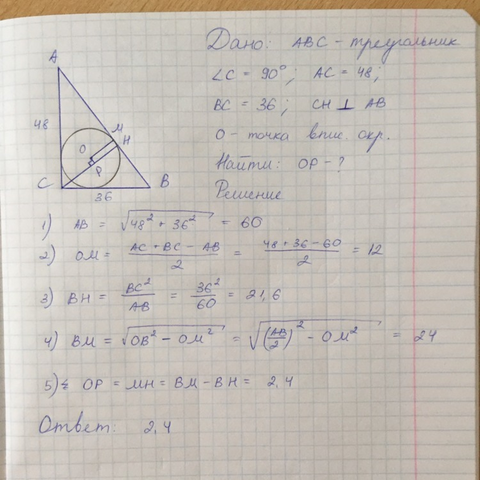 Дано: ABC - треугольник
∠C = 90°; AC = 48;
BC = 36; CH ⊥ AB
O - точка впис. окр.
Найти: OP - ?
Решение
A
48
M
H
O
P
C
B
36
1) AB = √(48² + 36²) = 60
2) OM = (AC + BC - AB)/2 = (48 + 36 - 60)/2 = 12
3) BH = BC²/AB = 36²/60 = 21,6
4) BM = √(OB² - OM²) = √((AB/2)² - OM²) = 24
5) OP = MH = BM - BH = 2,4
Ответ: 2,4